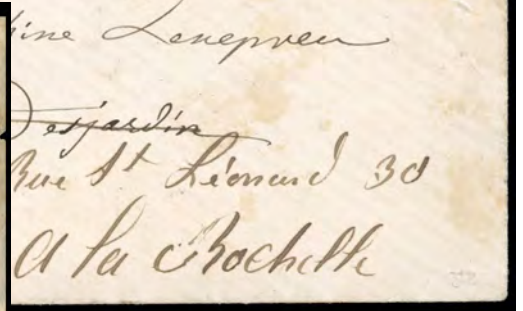 Lenepveu
Desjardin
Rue St Léonard 30
A la Rochelle